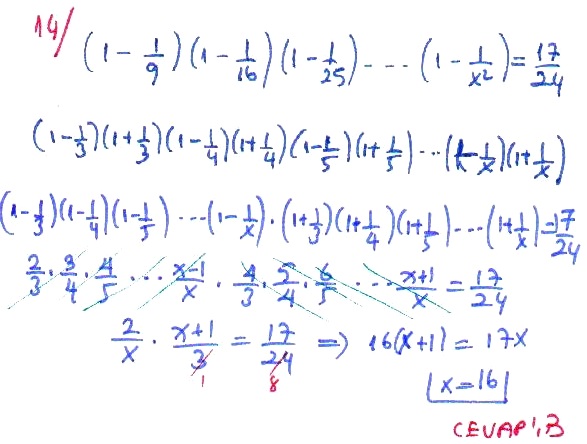 14/ (1 - 1/9)(1 - 1/16)(1 - 1/25) ---- (1 - 1/x²) = 17/24
(1-1/3)(1+1/3)(1-1/4)(1+1/4)(1-1/5)(1+1/5) ... (1-1/x)(1+1/x)
(1-1/3)(1-1/4)(1-1/5) ...(1-1/x) . (1+1/3)(1+1/4)(1+1/5) ...(1+1/x) = 17/24
2/3 . 3/4 . 4/5 ... x-1/x . 4/3 . 5/4 . 6/5 ... x+1/x = 17/24
2/x . x+1/3 = 17/24 => 16(x+1) = 17x
1 8
x=16
CEVAP: B